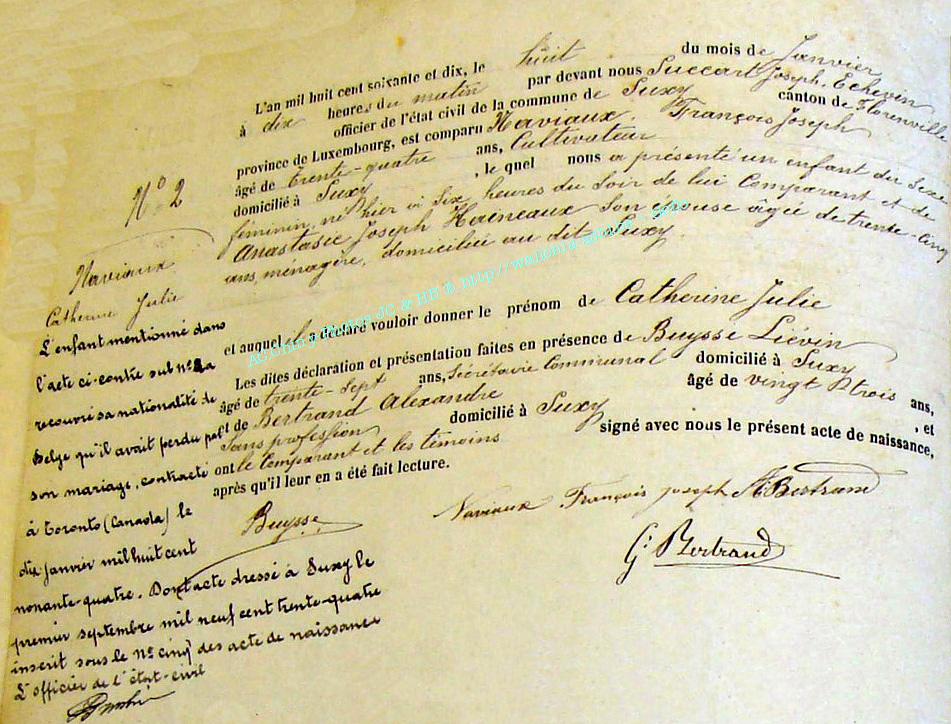 L'an mil huit cent soixante et dix, le huit du mois de Janvier
à dix heures du matin par devant nous Succart Joseph, Echevin
officier de l'état civil de la commune de Suxy canton de Florenville
province de Luxembourg, est comparu Naviaux, François Joseph
âgé de trente-quatre ans, Cultivateur
domicilié à Suxy, le quel nous a présenté un enfant du sexe
féminin, né hier à six heures du Soir de lui Comparant et de
Anastasie Joseph Haineaux Son épouse âgée de trente-cinq
ans, ménagère, domiciliée au dit Suxy
et auquel il a déclaré vouloir donner le prénom de Catherine Julie
Les dites déclaration et présentation faites en présence de Buysse Liévin
âgé de trente-sept ans, Sécrétaire Communal domicilié à Suxy
et de Bertrand Alexandre âgé de vingt trois ans,
Sans profession domicilié à Suxy, et
ont le Comparant et les témoins signé avec nous le présent acte de naissance,
après qu'il leur en a été fait lecture.
Buysse Naviaux François Joseph Bertrand
Bertrand
N° 2
Naviaux
Catherine Julie
L'enfant mentionné dans
l'acte ci-contre sub n° 2 a
recouvré sa nationalité de
Belge qu'il avait perdu par
son mariage, contracté
à Toronto (Canada) le
dix Janvier mil huit cent
nonante-quatre. Dont acte dressé à Suxy le
premier septembre mil neuf cent trente-quatre
inscrit sous le N° cinq des acte de naissance
L'officier de l'état-civil